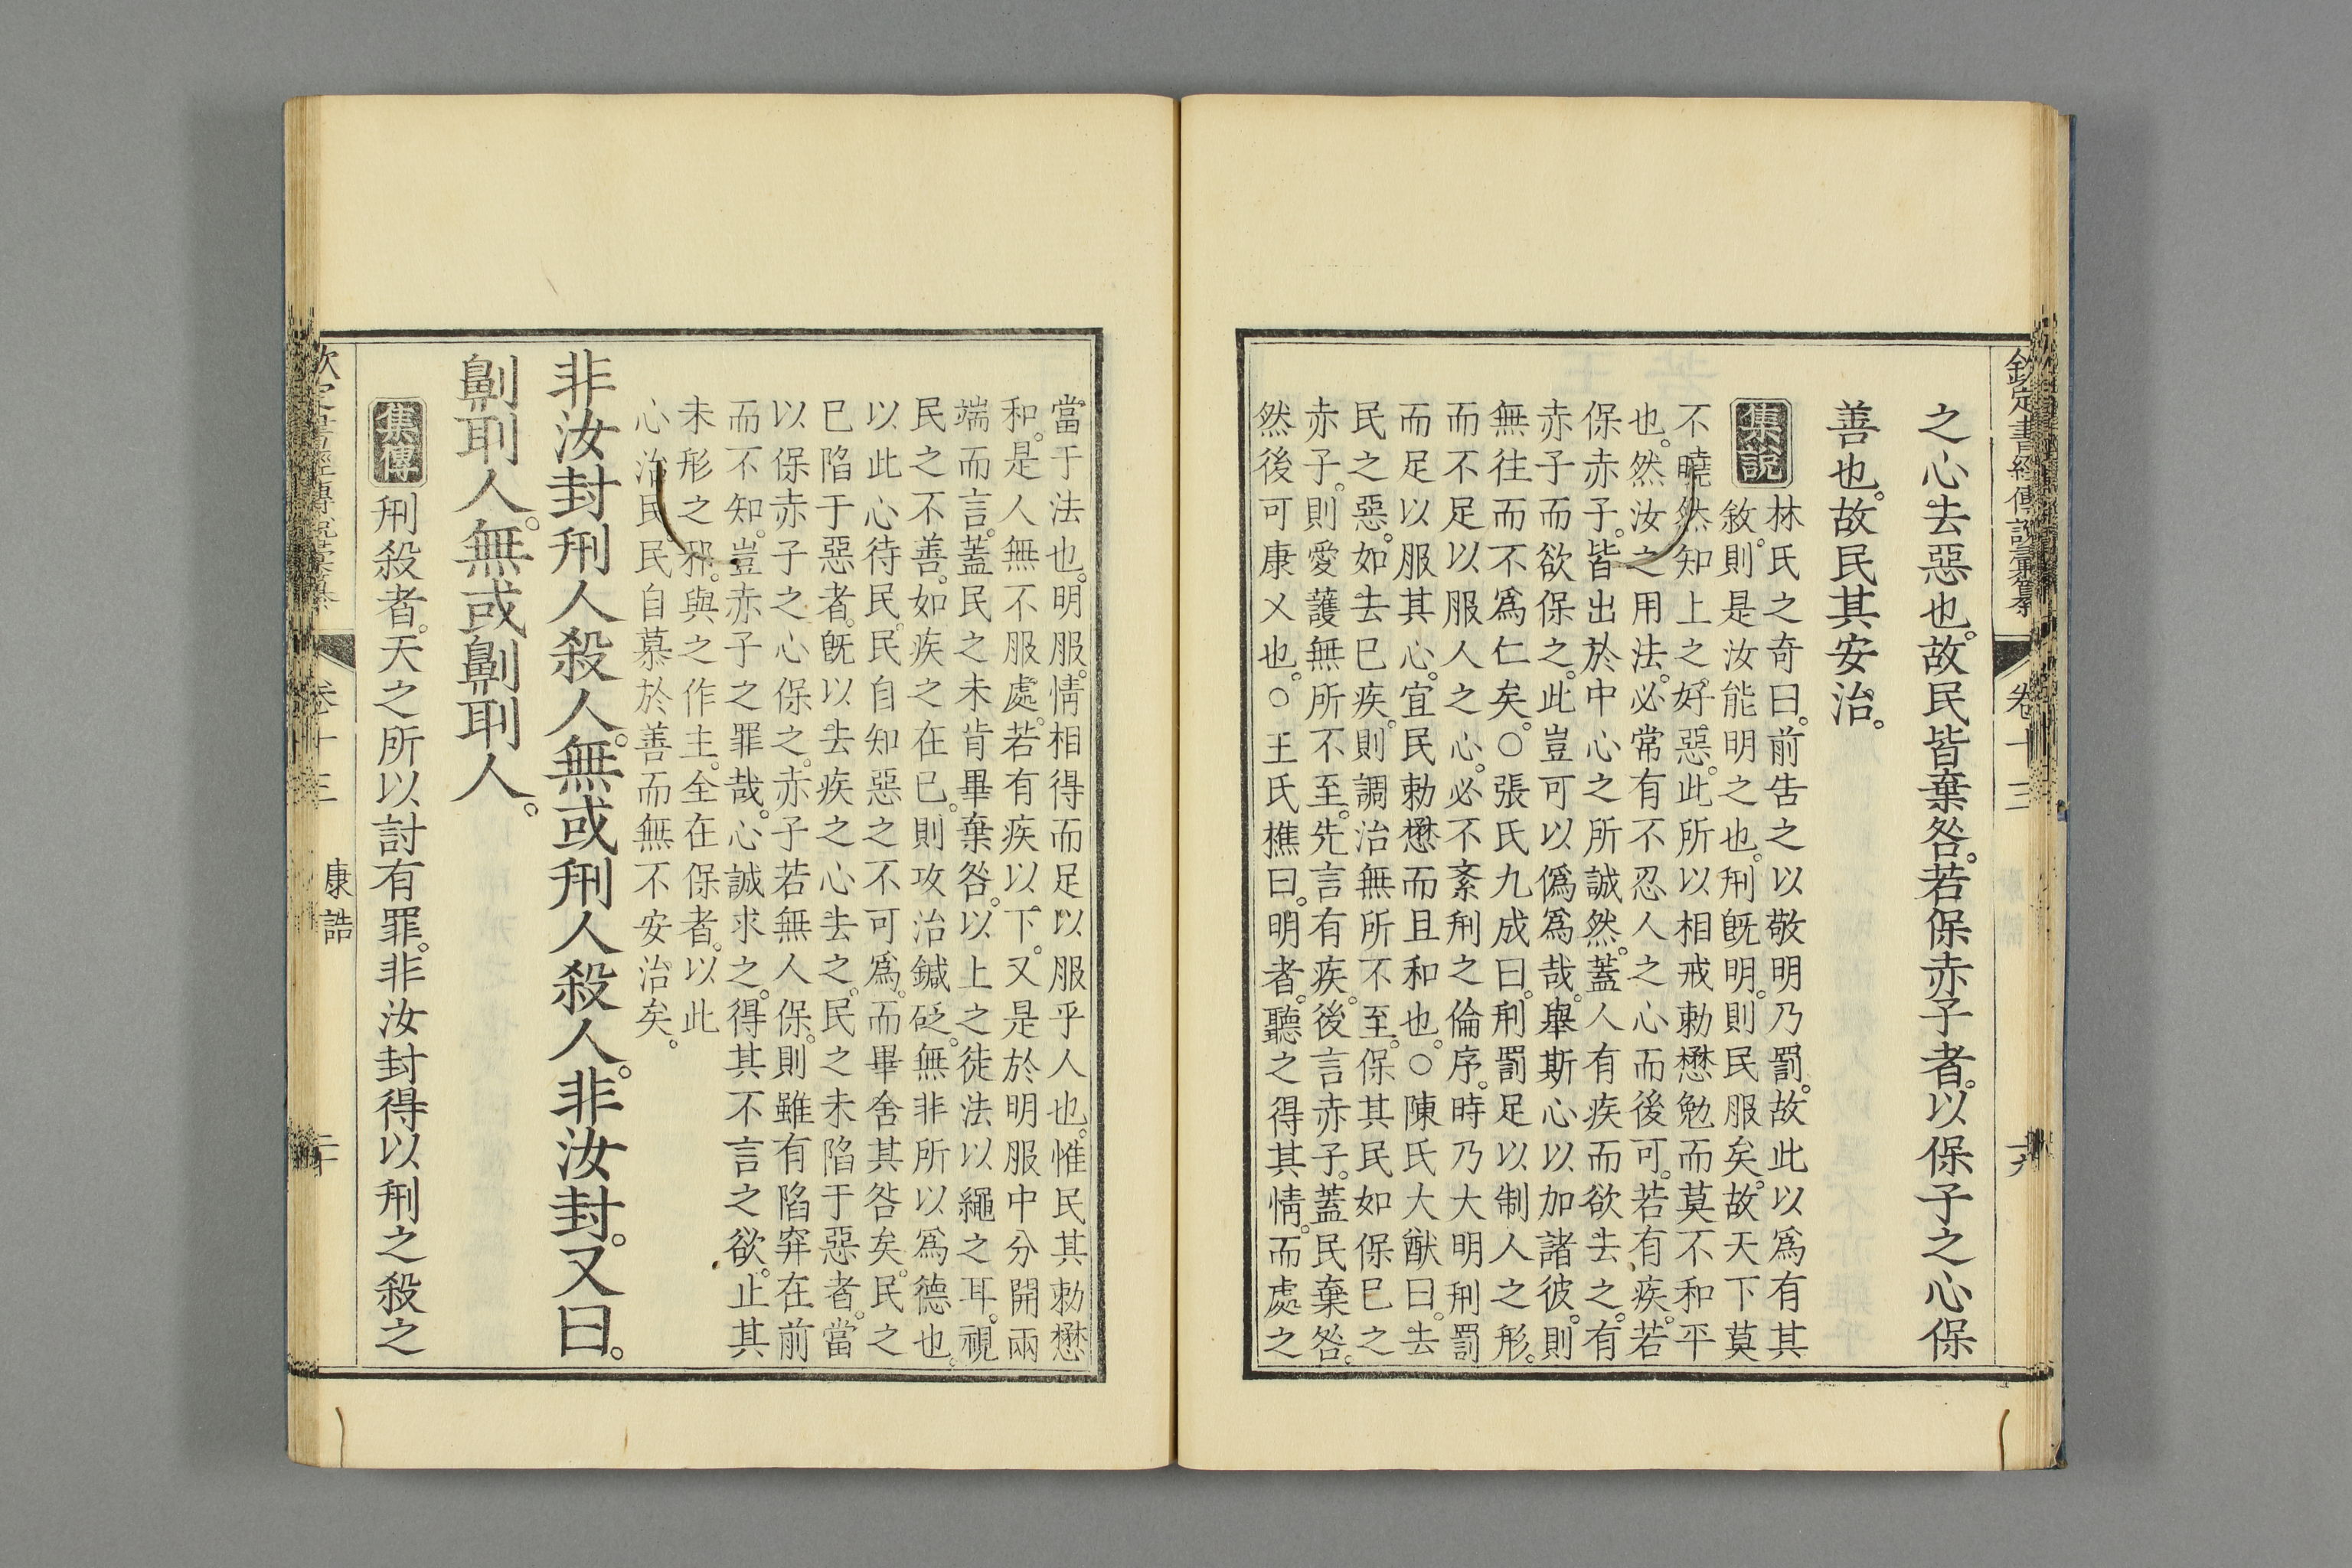 欽定書經傳說彙纂 卷十三
之心去惡也。故民皆棄咎。若保赤子者。以保子之心保
善也。故民其安治。
集說
林氏之奇曰。前告之以敬明乃罰。故此以爲有其
敘。則是汝能明之也。刑旣明。則民服矣。故天下莫
不曉然知上之好惡。此所以相戒勅懋勉而莫不和平
也。然汝之用法。必常有不忍人之心而後可。若有疾。若
保赤子。皆出於中心之所誠然。蓋人有疾而欲去之。有
赤子而欲保之。此豈可以僞爲哉。舉斯心以加諸彼。則
無往而不爲仁矣。○張氏九成曰。刑罰足以制人之形。
而不足以服人之心。必不紊刑之倫序。時乃大明刑罰
而足以服其心。宜民勅懋而且和也。○陳氏大猷曰。去
民之惡。如去已疾。則調治無所不至。保其民如保已之
赤子。則愛護無所不至。先言有疾。後言赤子。蓋民棄咎。
然後可康乂也。○王氏樵曰。明者。聽之得其情。而處之
當于法也。明服。情相得而足以服乎人也。惟民其勅懋
和。是人無不服處。若有疾以下。又是於明服中分開兩
端而言。蓋民之未肯畢棄咎。以上之徒法以繩之耳。視
民之不善。如疾之在已。則攻治鍼砭。無非所以爲德也。
以此心待民。民自知惡之不可爲。而畢舍其咎矣。民之
已陷于惡者。旣以去疾之心去之。民之未陷于惡者。當
以保赤子之心保之。赤子若無人保。則雖有陷穽在前
而不知。豈赤子之罪哉。心誠求之。得其不言之欲。止其
未形之邪。與之作主。全在保者。以此
心治民。民自慕於善而無不安治矣。
非汝封刑人殺人。無或刑人殺人。非汝封。又曰。
劓刵人。無或劓刵人。
集傳
刑殺者。天之所以討有罪。非汝封得以刑之殺之
欽定書經傳說彙纂 卷十三 康誥 二十